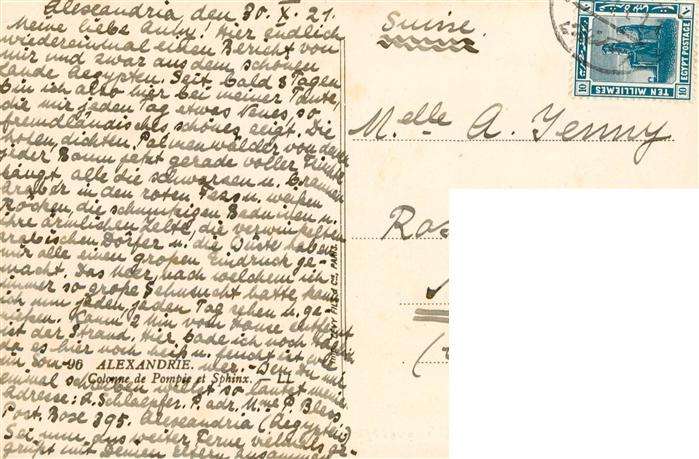 Alexandria, den 30. X. 21.
Meine liebe Anny! Hier endlich
wiedereinmal einen Bericht von
mir und zwar aus dem schönen
Lande Aegypten. Seit bald 8 Tagen
bin ich also hier bei meiner Tante,
die mir jeden Tag etwas Neues, so
fremdländisches schönes zeigt. Die
hohen, dichten Palmenwälder von denen
jeder Baum jetzt gerade voller Früchte
hängt, alle die schwarzen u. braunen
Araber in den roten Fess u. weissen
Röcken, die schmutzigen Beduinen u.
ihre ärmlichen Zelte, die verwinkelten
arabischen Dörfer u. die Wüste haben
mir alle einen grossen Eindruck ge-
macht. Das Meer, nach welchem ich
immer so grosse Sehnsucht hatte, kann
ich nun jeden, jeden Tag sehen u. ge-
niessen. Kaum 2 Min vom Hause entfernt
ist der Strand. Hier bade ich noch
da es hier noch heiss u. feucht ist wie
im Som- mer. – Wenn Du mir
einmal schreiben willst so lautet meine
Adresse: A. Schlaepfer, p. adr. Bless
Post. Boxe 395. Alexandria (Aegypten)
Sei nun aus weiter Ferne vielmals ge-
grüsst mit Deinen Eltern zusammen
90 ALEXANDRIE.
Colonne de Pompée et Sphinx. LL
Suisse.
Melle A. Jenny
EGYPT POSTAGE
TEN MILLIEMES
10 10